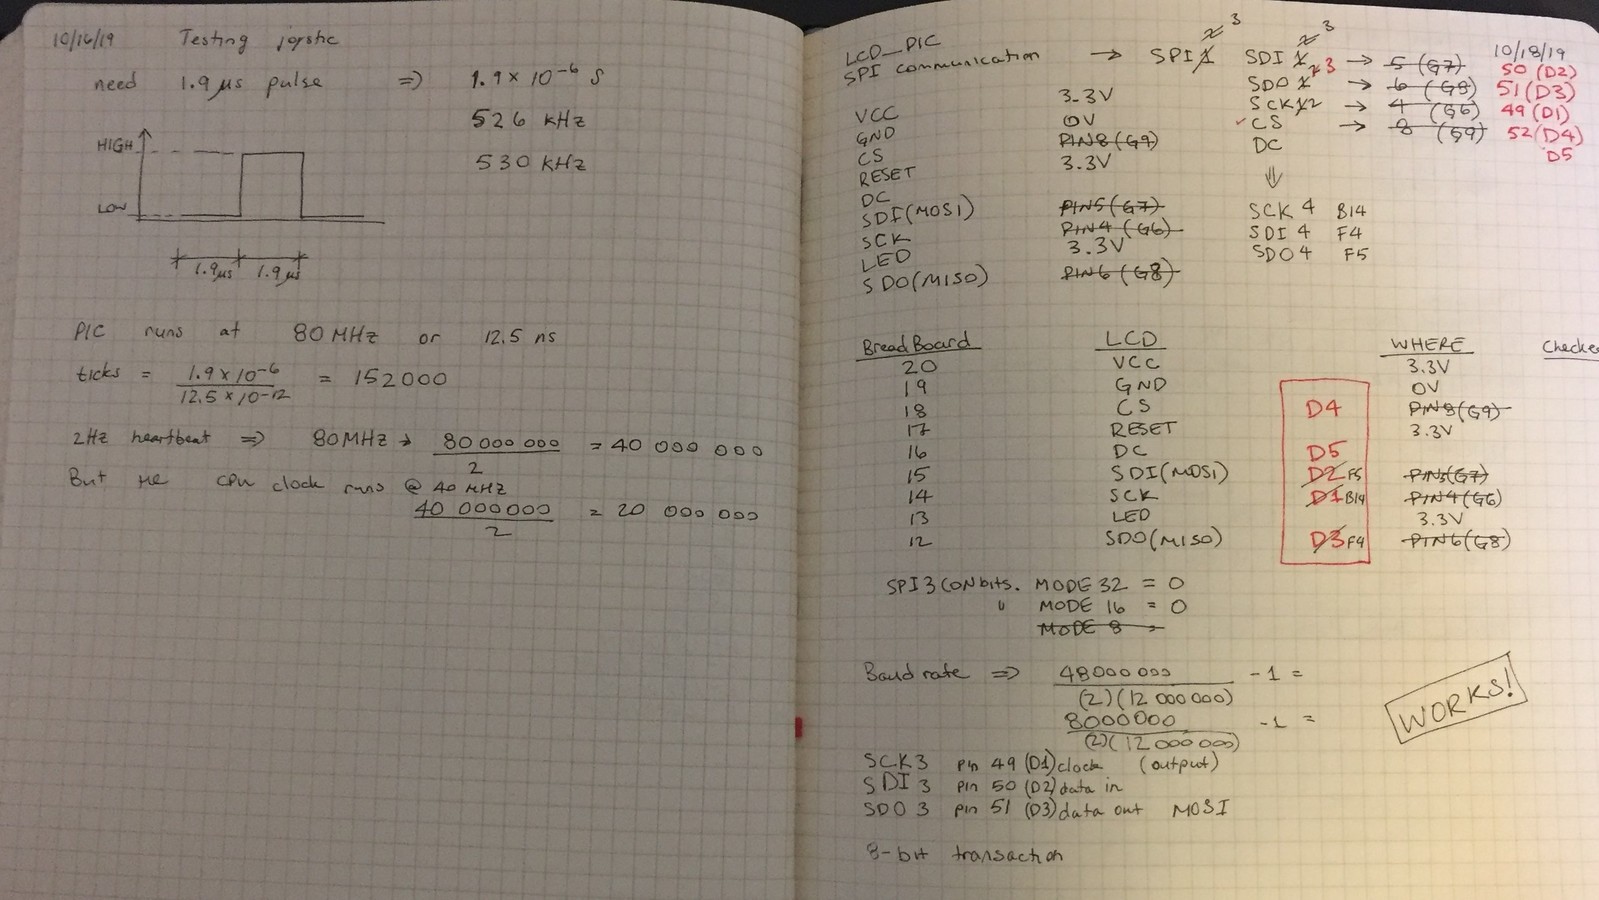 10/16/19 Testing joystic
need 1.9 μs pulse => 1.9 x 10^-6 s
526 kHz
530 kHz
HIGH
LOW
1.9μs 1.9μs
PIC runs at 80 MHz or 12.5 ns
ticks = 1.9 x 10^-6 / 12.5 x 10^-12 = 152000
2Hz heartbeat => 80MHz → 80 000 000 / 2 = 40 000 000
But the CPU clock runs @ 40 MHz
40 000000 / 2 = 20 000 000
LCD_PIC
SPI communication → SPI 1 2 3
10/18/19
SDI 1 2 3 → 5 (G7) 50 (D2)
SDO 1 2 3 → 6 (G8) 51 (D3)
SCK 1 2 → 4 (G6) 49 (D1)
CS → 8 (G9) 52 (D4)
DC D5
⇓
SCK 4 B14
SDI 4 F4
SDO4 F5
VCC 3.3V
GND 0V
CS PIN8 (G9)
RESET 3.3V
DC
SDI(MOSI) PIN5 (G7)
SCK PIN4 (G6)
LED 3.3V
SDO(MISO) PIN6 (G8)
BreadBoard LCD WHERE Checke
20 VCC 3.3V
19 GND 0V
18 CS D4 PIN8(G9)
17 RESET 3.3V
16 DC D5
15 SDI(MOSI) D2 F5 PIN5(G7)
14 SCK D1 B14 PIN4(G6)
13 LED 3.3V
12 SDO(MISO) D3 F4 PIN6(G8)
SPI3CONbits. MODE 32 = 0
" MODE 16 = 0
MODE 8 =
Baud rate => 48000 000 / (2)(12 000 000) -1 =
8000000 / (2)(12 000 000) -1 =
WORKS!
SCK3 pin 49 (D1) clock (output)
SDI 3 pin 50 (D2) data in
SDO 3 pin 51 (D3) data out MOSI
8-bit transaction